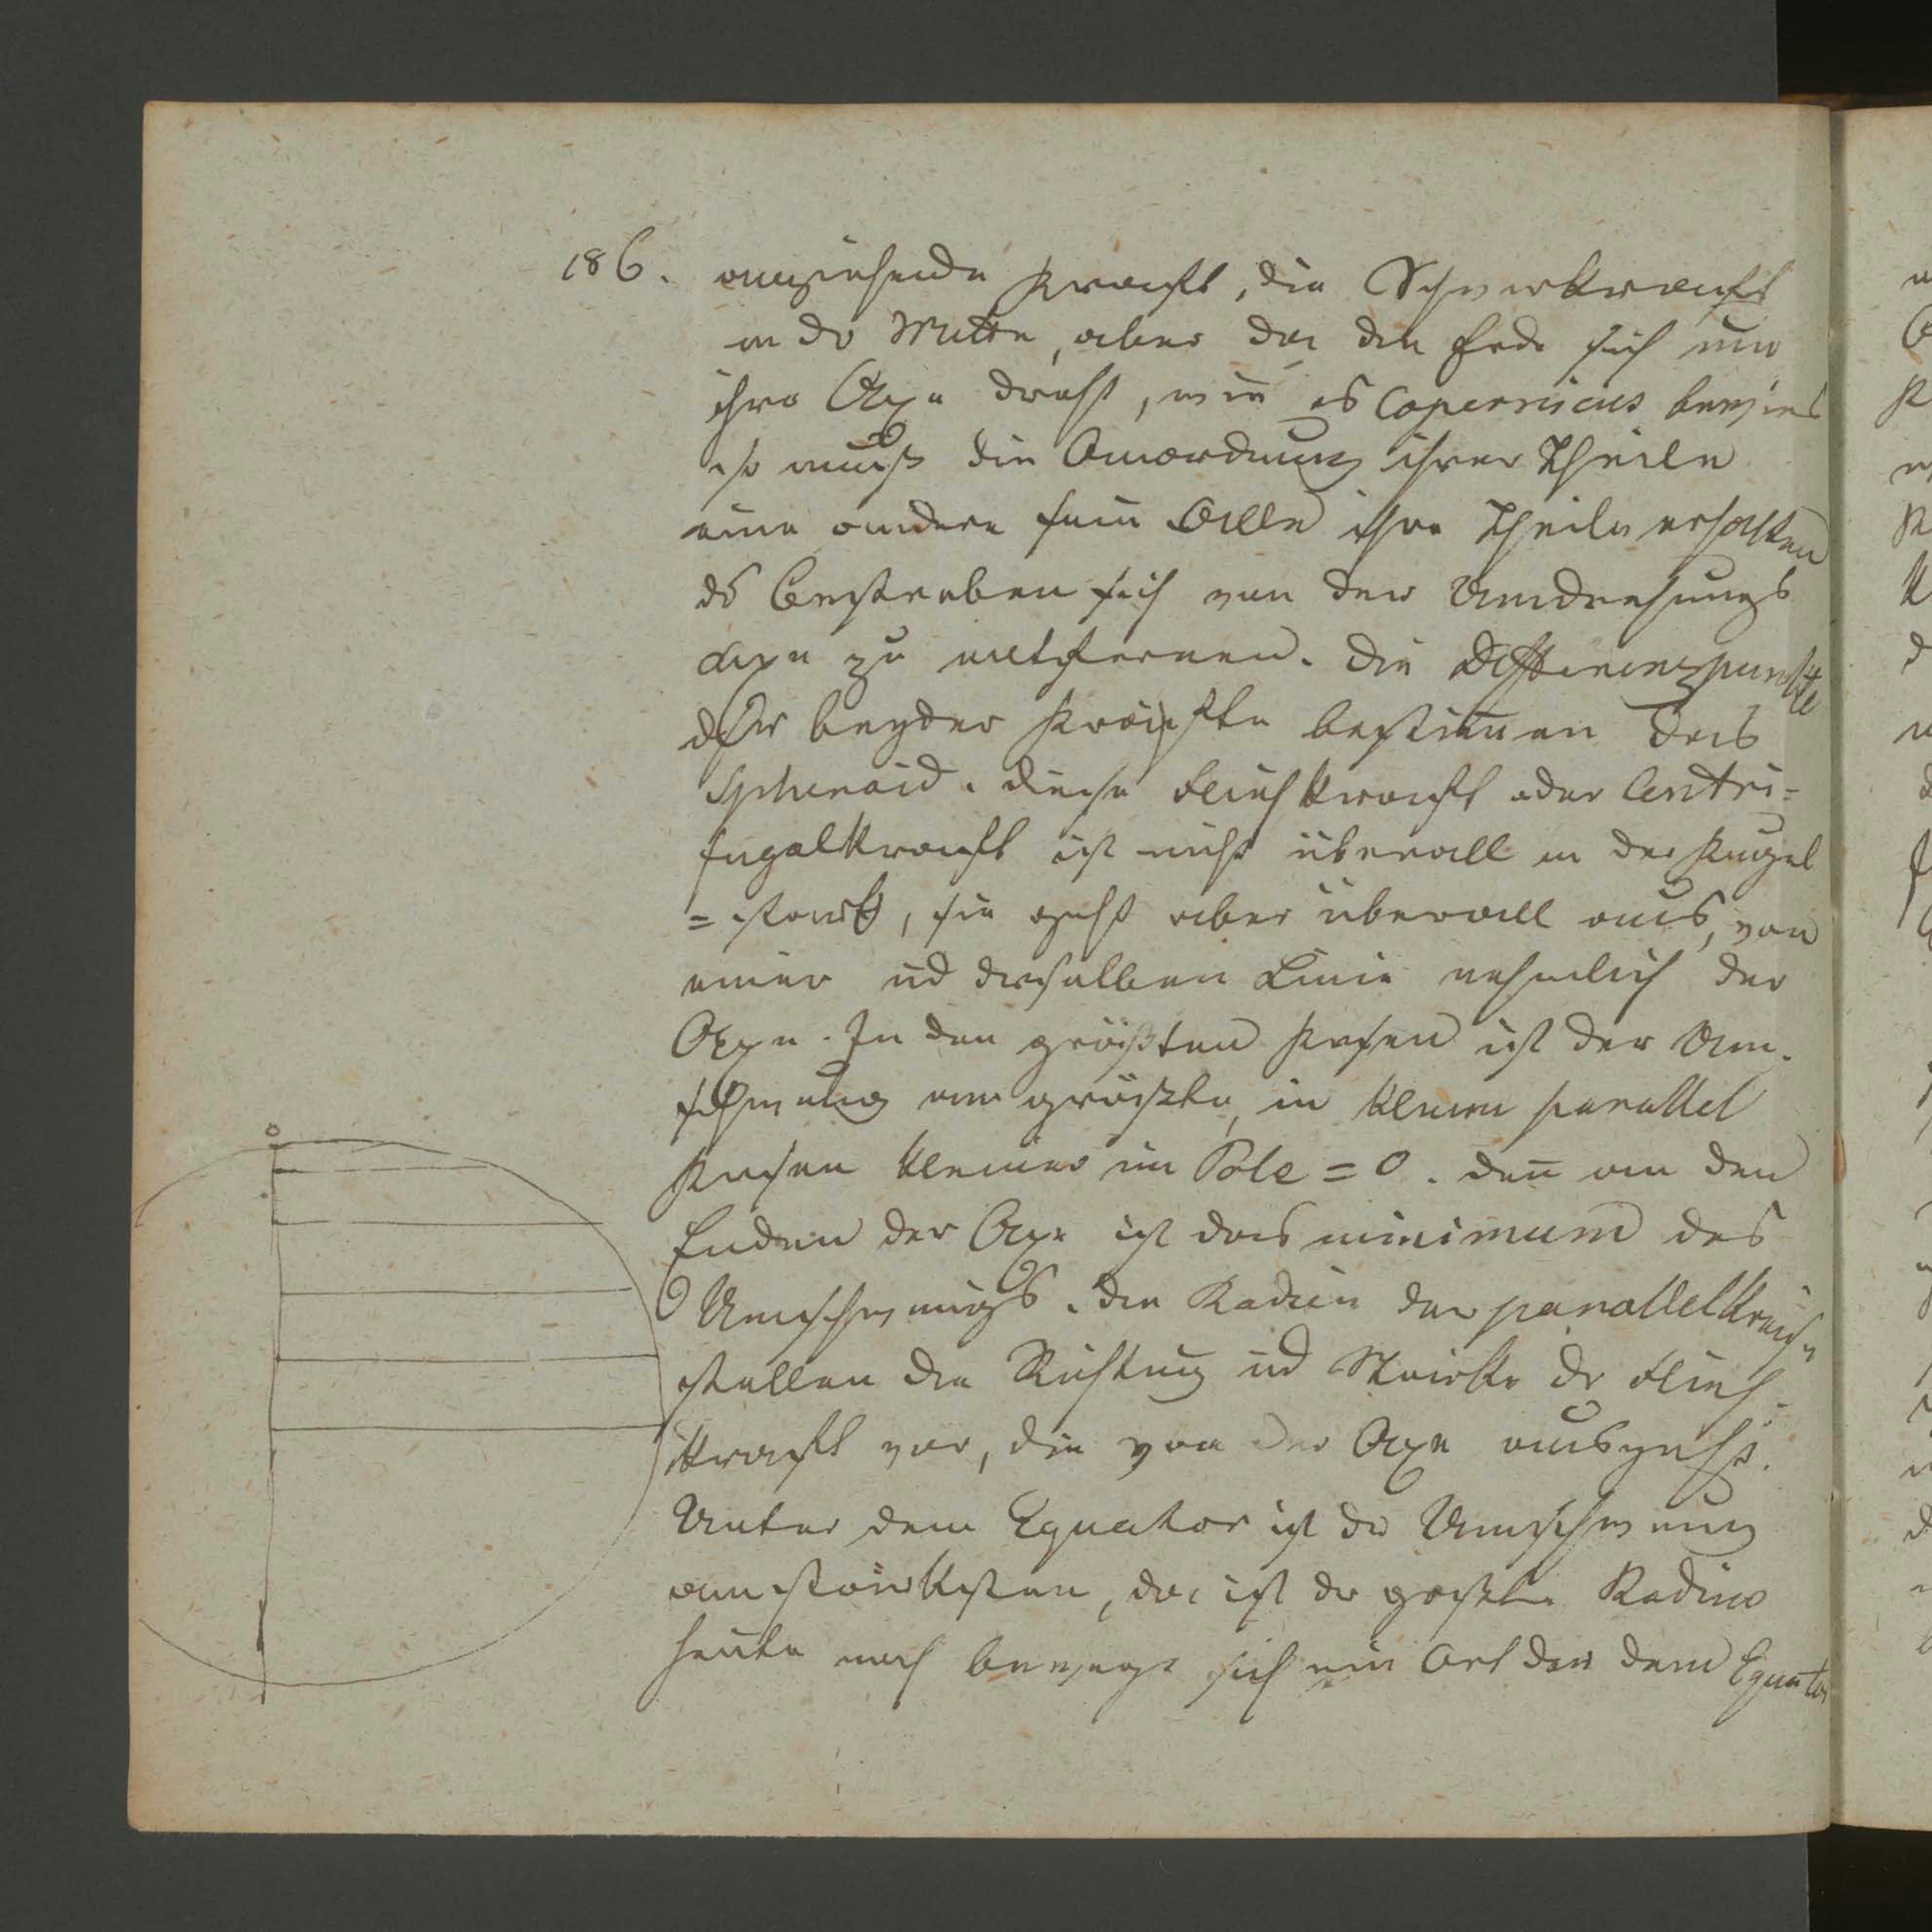 186. anziehende Kraft, die Schwerkraft
in dr Mitte, aber da die Erde sich um
ihre Axe dreht, wie es Copernicus bewies
so muß die Anordnung ihrer Theile
eine andere sein Alle ihre Theile erhalten
ds Bestreben sich von der Umdrehungs
axe zu entfernen. Die Differenzpunkte
dsr beyder Kräfte bestimen das
Sphenoid. diese Fliehkraft oder Centri=
fugalkraft ist nicht überall in der Kugel
= stark, sie geht aber überall aus, von
einer ud derselben Linie nehmlich der
Axe. In den größten Kreisen ist der Um-
schwung am größten, in kleinen parallel
Kreisen kleiner im Pole = 0. den an den
Enden der Axe ist das minimum des
Umschwungs. die Radien der parallelkreise
stellen die Richtung ud Stärke dr Flieh-
kraft vor, die von der Axe ausgeht.
Unter dem Equator ist dr Umschwung
am stärksten, da ist dr größte Radius
heute noch bewegt sich ein Ort der dem Equator